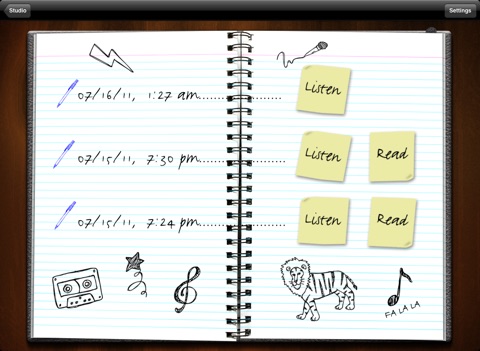 Studio Settings
07/16/11, 1:27 am Listen
07/15/11, 7:30 pm Listen Read
07/15/11, 7:24 pm Listen Read
FA LA LA